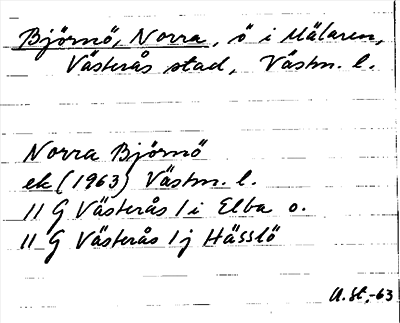 Björnö, Norra, ö i Mälaren,
Västerås stad, Västm. l.
Norra Björnö
ek (1963) Västm. l.
11 G Västerås 1 i Elba o.
11 G Västerås 1 j Hässlö
U.St.-63